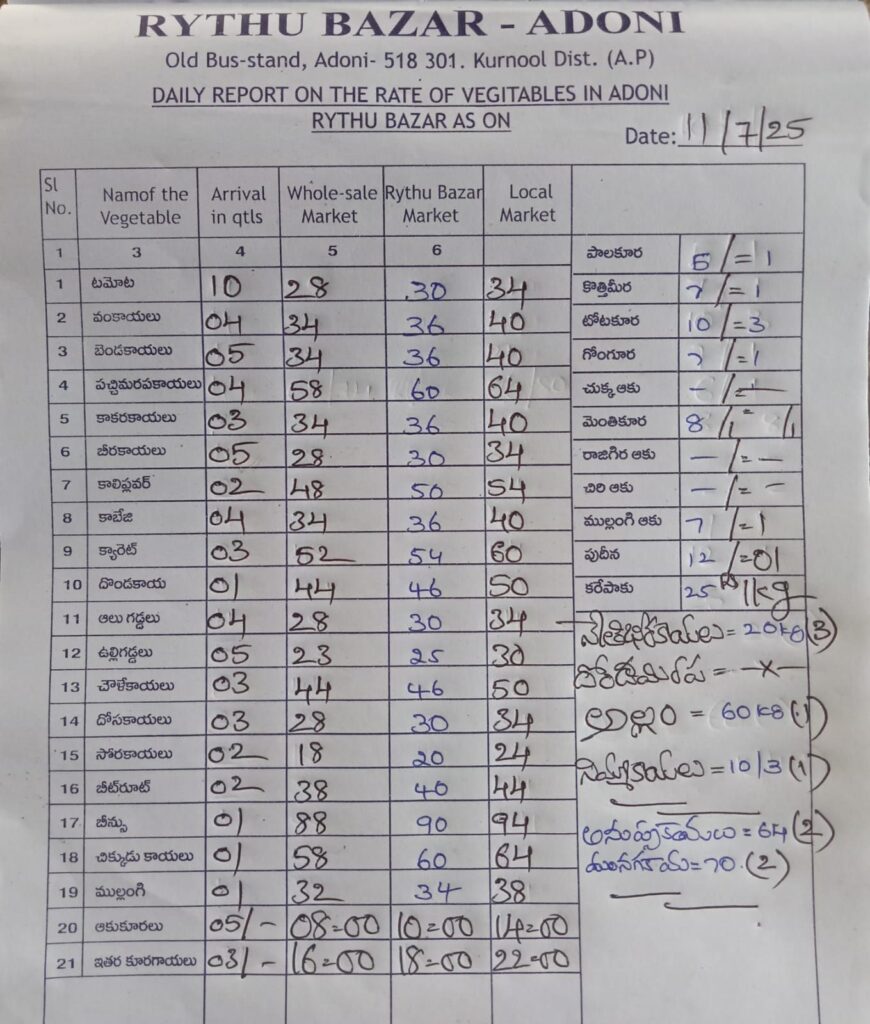 RYTHU BAZAR - ADONI
Old Bus-stand, Adoni- 518 301. Kurnool Dist. (A.P)
DAILY REPORT ON THE RATE OF VEGITABLES IN ADONI
RYTHU BAZAR AS ON
Date: 11/7/25
Sl No. Namof the Vegetable Arrival in qtls Whole-sale Market Rythu Bazar Market Local Market
1 3 4 5 6
1 టమోట 10 28 30 34
2 వంకాయలు 04 34 36 40
3 బెండకాయలు 05 34 36 40
4 పచ్చిమిరపకాయలు 04 58 60 64
5 కాకరకాయలు 03 34 36 40
6 బీరకాయలు 05 28 30 34
7 కాలిఫ్లవర్ 02 48 50 54
8 కాబేజి 04 34 36 40
9 క్యారెట్ 03 52 54 60
10 దొండకాయ 01 44 46 50
11 ఆలు గడ్డలు 04 28 30 34
12 ఉల్లిగడ్డలు 05 23 25 30
13 చౌళేకాయలు 03 44 46 50
14 దోసకాయలు 03 28 30 34
15 సోరకాయలు 02 18 20 24
16 బీట్‌రూట్ 02 38 40 44
17 బీన్సు 01 88 90 94
18 చిక్కుడు కాయలు 01 58 60 64
19 ముల్లంగి 01 32 34 38
20 ఆకుకూరలు 05/- 08=00 10=00 14=00
21 ఇతర కూరగాయలు 03/- 16=00 18=00 22=00
పాలకూర 5/=1
కొత్తిమీర 7/=1
టోటకూర 10/=3
గోంగూర 7/=1
చుక్క ఆకు - /= -
మెంతికూర 8/1
రాజిగిర ఆకు - /= -
చిరి ఆకు - /= -
ముల్లంగి ఆకు 7/=1
పుదీన 12/=01
కరేపాకు 25 1kg
నేతిబీరకాయలు = 20 kg (3)
= -x-
అల్లం = 60 kg (1)
నిమ్మకాయలు = 10/3 (1)
= 64 (2)
మునగకాయ = 70. (2)